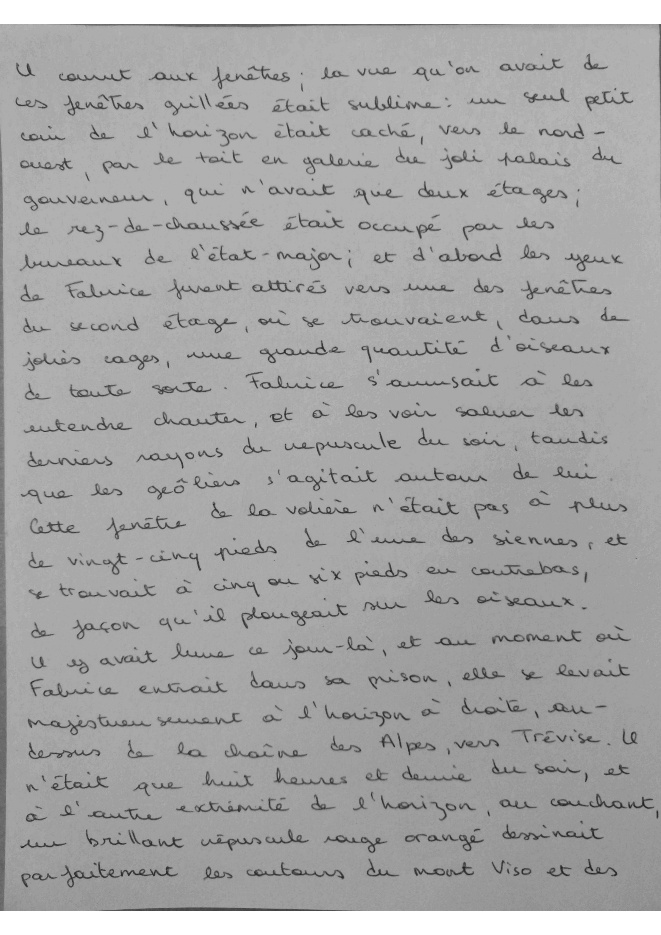 Il courut aux fenêtres ; la vue qu'on avait de
ces fenêtres grillées était sublime : un seul petit
coin de l'horizon était caché, vers le nord-
ouest, par le toit en galerie du joli palais du
gouverneur, qui n'avait que deux étages ;
le rez-de-chaussée était occupé par les
bureaux de l'état-major ; et d'abord les yeux
de Fabrice furent attirés vers une des fenêtres
du second étage, où se trouvaient, dans de
jolies cages, une grande quantité d'oiseaux
de toute sorte. Fabrice s'amusait à les
entendre chanter, et à les voir saluer les
derniers rayons du crépuscule du soir, tandis
que les geôliers s'agitait autour de lui.
Cette fenêtre de la volière n'était pas à plus
de vingt-cinq pieds de l'une des siennes, et
se trouvait à cinq ou six pieds en contrebas,
de façon qu'il plongeait sur les oiseaux.
Il y avait lune ce jour-là, et au moment où
Fabrice entrait dans sa prison, elle se levait
majestueusement à l'horizon à droite, au-
dessus de la chaîne des Alpes, vers Trévise. Il
n'était que huit heures et demie du soir, et
à l'autre extrémité de l'horizon, au couchant,
un brillant crépuscule rouge orangé dessinait
parfaitement les contours du mont Viso et des